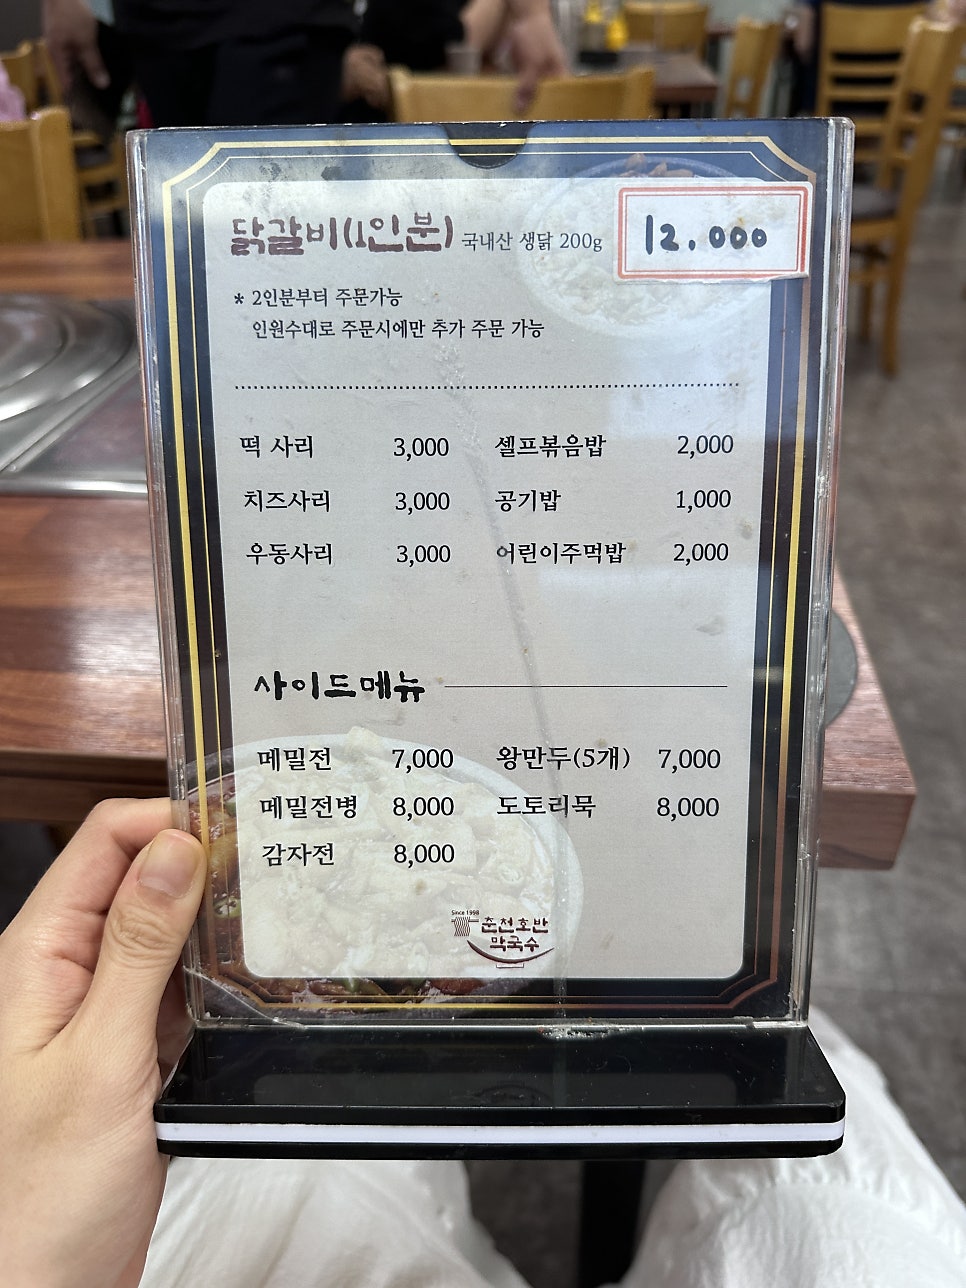 닭갈비(1인분) 국내산 생닭 200g 12.000
* 2인분부터 주문가능
인원수대로 주문시에만 추가 주문 가능
떡 사리 3,000 셀프볶음밥 2,000
치즈사리 3,000 공기밥 1,000
우동사리 3,000 어린이주먹밥 2,000
사이드메뉴
메밀전 7,000 왕만두(5개) 7,000
메밀전병 8,000 도토리묵 8,000
감자전 8,000
Since 1998
춘천호반
막국수